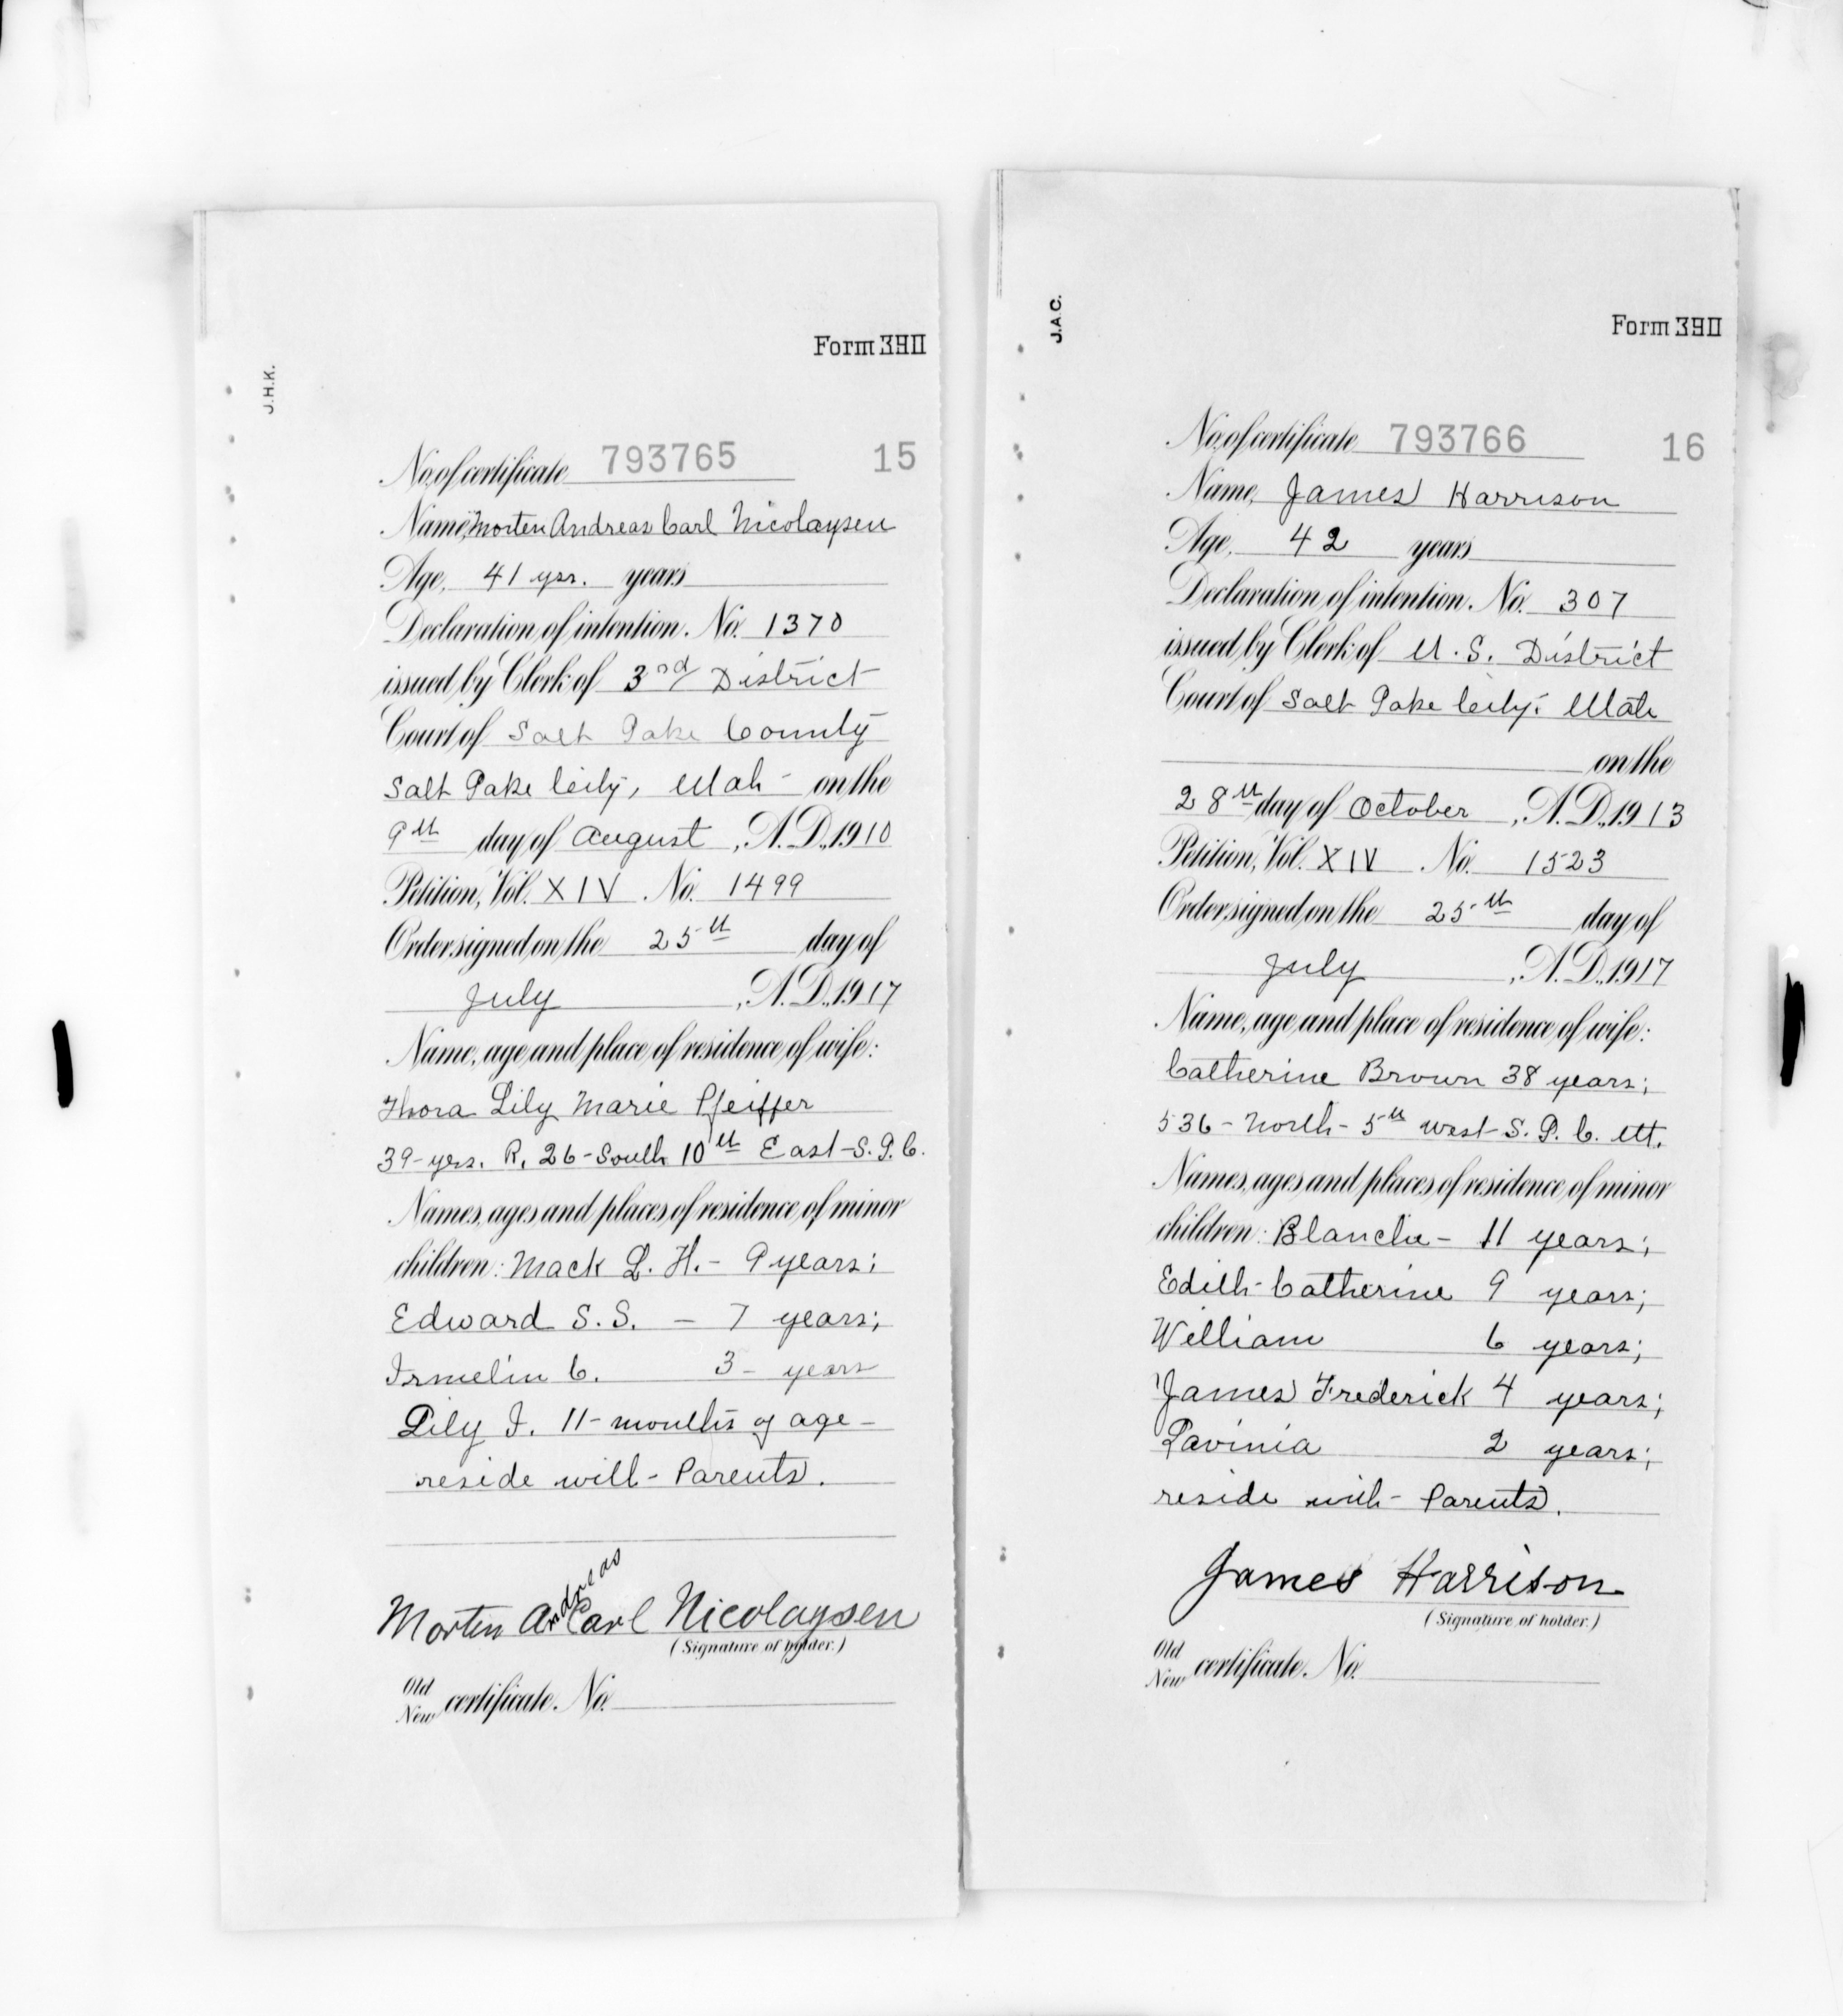 J.H.K.
Form 3911
No. of certificate 793765 15
Name, Morten Andreas Carl Nicolaysen
Age, 41 yrs. years
Declaration of intention. No. 1370
issued by Clerk of 3rd District
Court of Salt Lake County
Salt Lake City, Utah - on the
9th day of August, A.D. 1910
Petition, Vol. XIV No. 1499
Order signed on the 25th day of
July, A.D. 1917
Name, age and place of residence of wife:
Thora Lily Marie Pfeiffer
39-yrs. R. 26-South 10th East-S.L.C.
Names, ages and places of residence of minor
children: Mack L. H. - 9 years;
Edward S.S. - 7 years;
Irmelin C. 3- years
Lily I. 11-months of age-
reside with-Parents.
Morten Andreas Carl Nicolaysen
(Signature of holder.)
Old
New certificate. No.
J.A.C.
Form 3911
No. of certificate 793766 16
Name, James Harrison
Age, 42 years
Declaration of intention. No. 307
issued by Clerk of U.S. District
Court of Salt Lake City, Utah
on the
28th day of October, A.D. 1913
Petition, Vol. XIV No. 1523
Order signed on the 25th day of
July, A.D. 1917
Name, age and place of residence of wife:
Catherine Brown 38 years;
536-North-5th West-S.L.C. Ut.
Names, ages and places of residence of minor
children: Blanche - 11 years;
Edith-Catherine 9 years;
William 6 years;
James Frederick 4 years;
Lavinia 2 years;
reside with-Parents.
James Harrison
(Signature of holder.)
Old
New certificate. No.